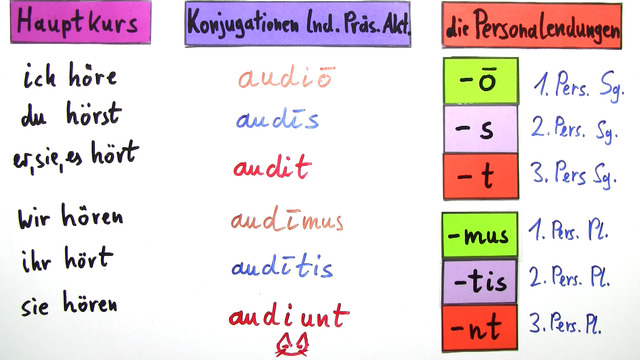 Hauptkurs
Konjugationen Ind. Präs. Akt.
die Personalendungen
ich höre
audiō
-ō
1. Pers. Sg.
du hörst
audīs
-s
2. Pers. Sg.
er, sie, es hört
audit
-t
3. Pers Sg.
wir hören
audīmus
-mus
1. Pers. Pl.
ihr hört
audītis
-tis
2. Pers. Pl.
sie hören
audiunt
-nt
3. Pers. Pl.